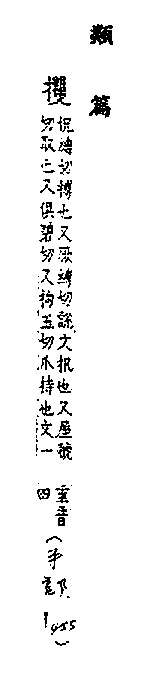 類篇
攫
怳縛切搏也又厥縛切說文扟也又屋虢
切取也又俱碧切又拘玉切爪持也文一
重音
四
(手部 1455)